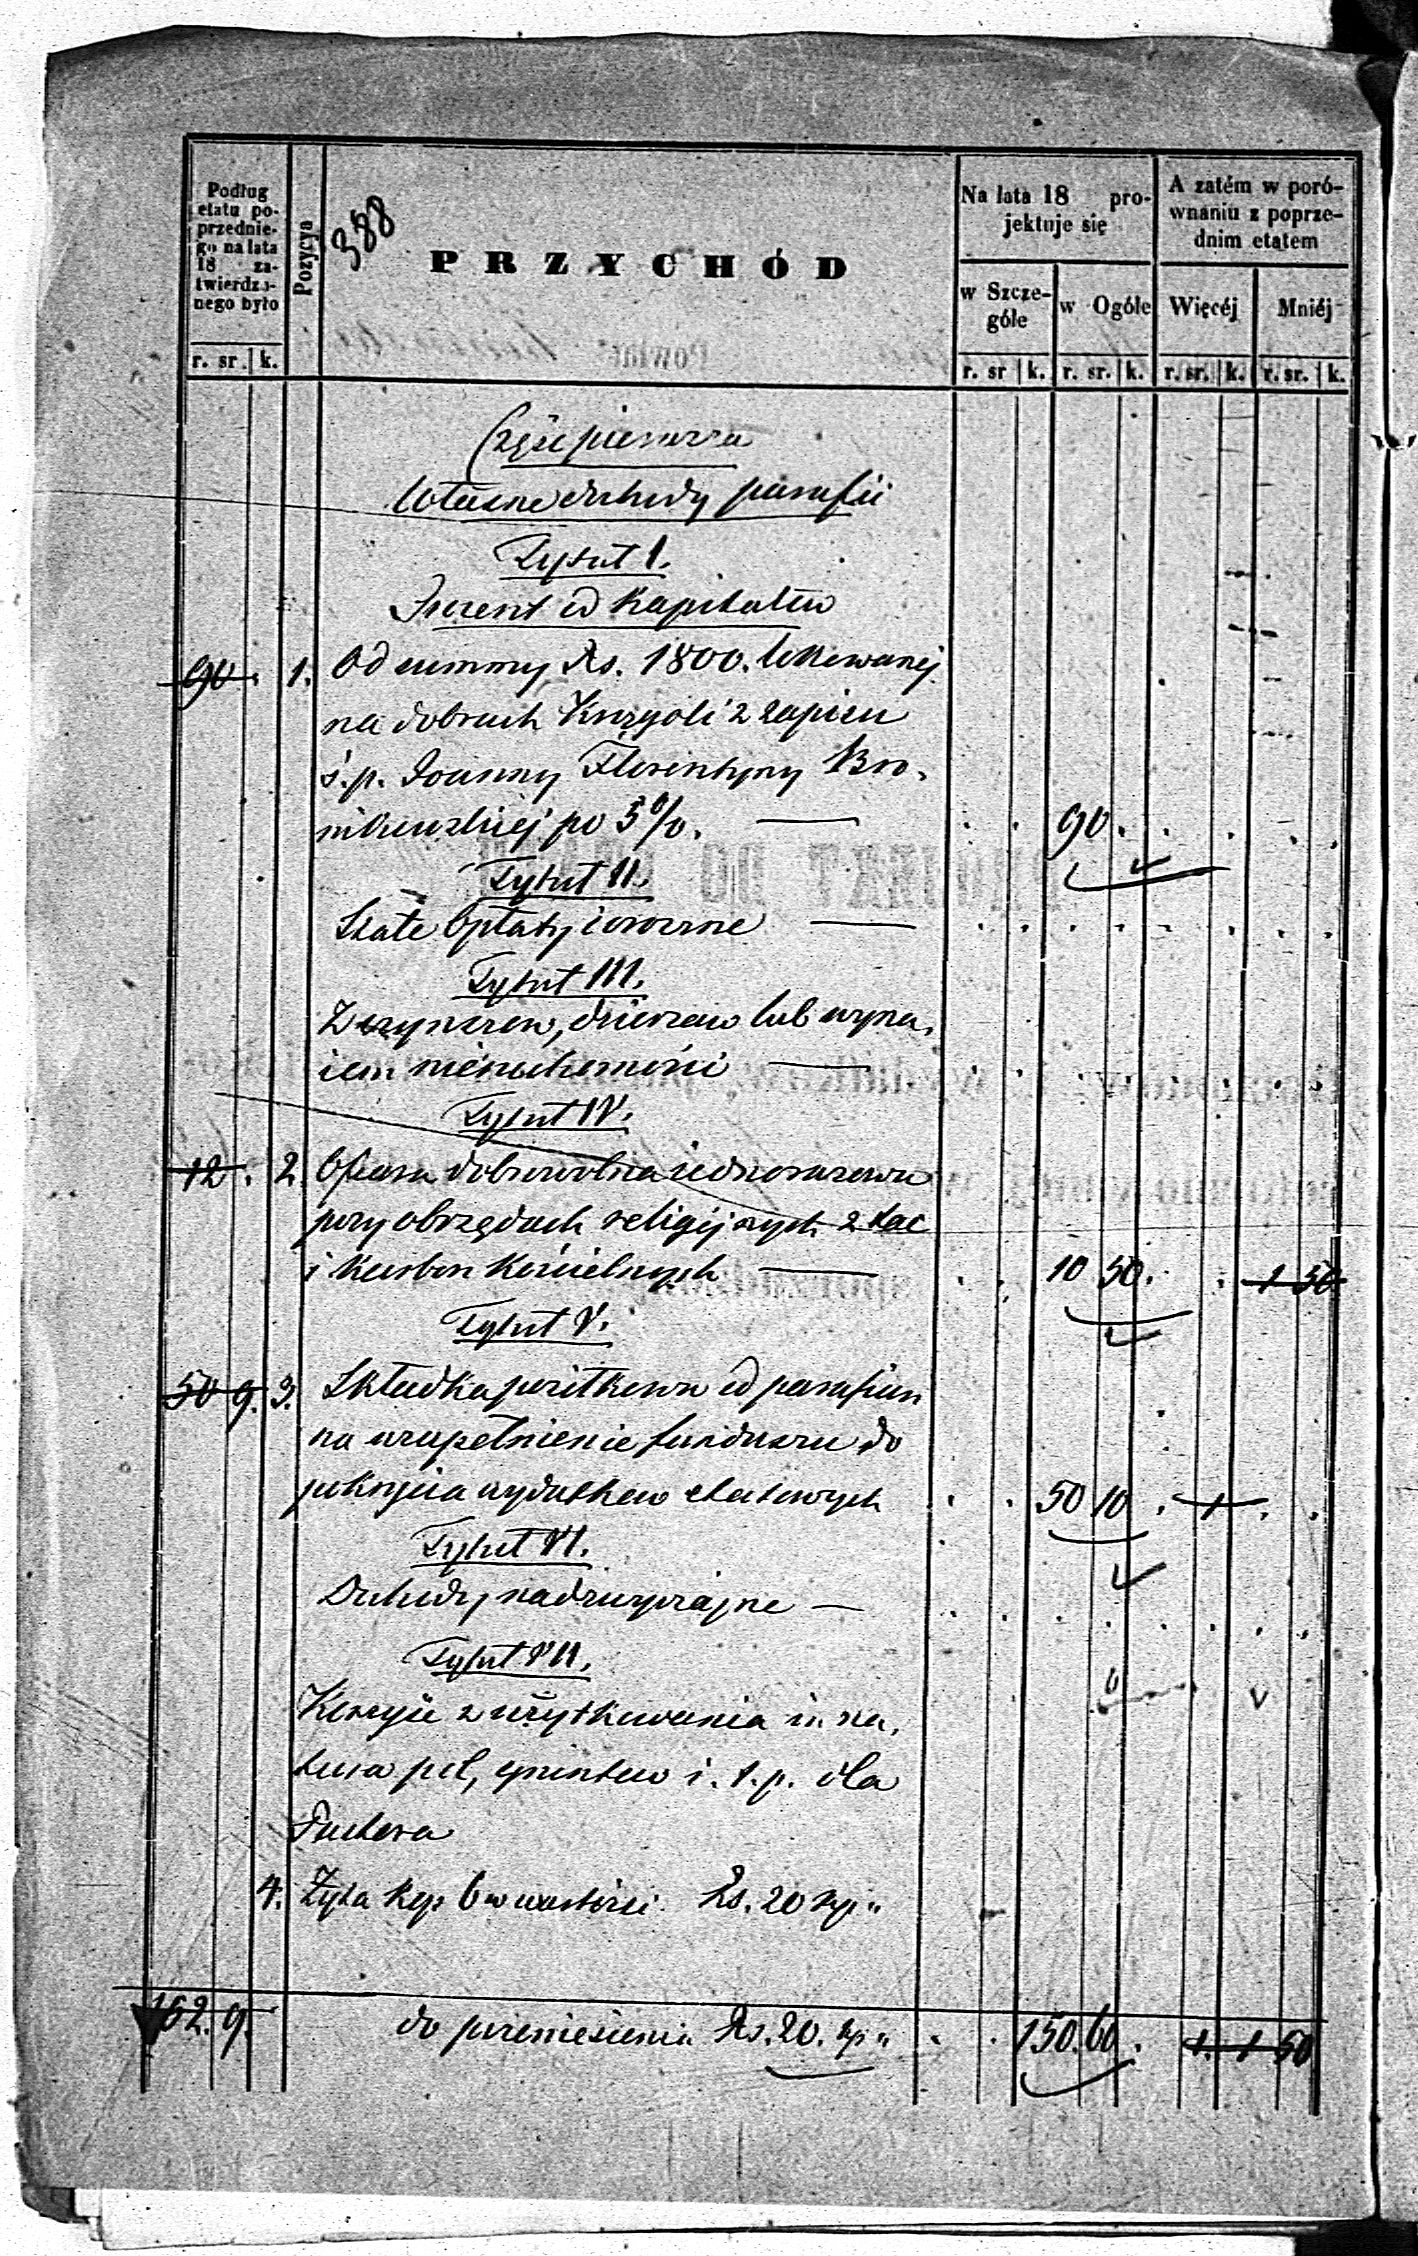 Podług
etatu po-
przednie-
go na lata
18 za-
twierdzo-
nego było
r. sr. k.
Pozycya
388
PRZYCHÓD
Na lata 18 pro-
jektuje się
w Szcze-
góle
w Ogóle
r. sr k. r. sr. k.
A zatém w poró-
wnaniu z poprze-
dnim etatem
Więcéj Mniéj
r. sr. k. r. sr. k.
Część pierwsza
Własne dochody parafii
Tytuł I.
Procent od Kapitałów
90. 1. Od summy Rs. 1800. lokowanej
na dobrach z zapisu
ś. p. Joanny Florentyny Bro-
nikowskiej po 5%. — 90.
Tytuł II.
Stałe Opłaty coroczne —
Tytuł III.
Z czynszów, dzierżaw lub wyna-
iem nieruchomości —
Tytuł IV.
12. 2. Ofiara dobrowolna iednorazowa
przy obrzędach religijnych z tac
i Karbon Kościelnych — 10 50. 1 50
Tytuł V.
50 9. 3. Składka poiedkowa od parafian
na uzupełnienie funduszu do
pokrycia wydatków etatowych 50 10. 1
Tytuł VI.
Dochody nadzwyczajne —
Tytuł VII.
Korzyści z użytkowania in na-
tura pól, gruntów i. t. p. dla
Pastora
4. Żyta Kor. 6 w wartości Rs. 20 kp "
152. 9. do przeniesienia Rs. 20. kp " 150. 60. 1. 1 50